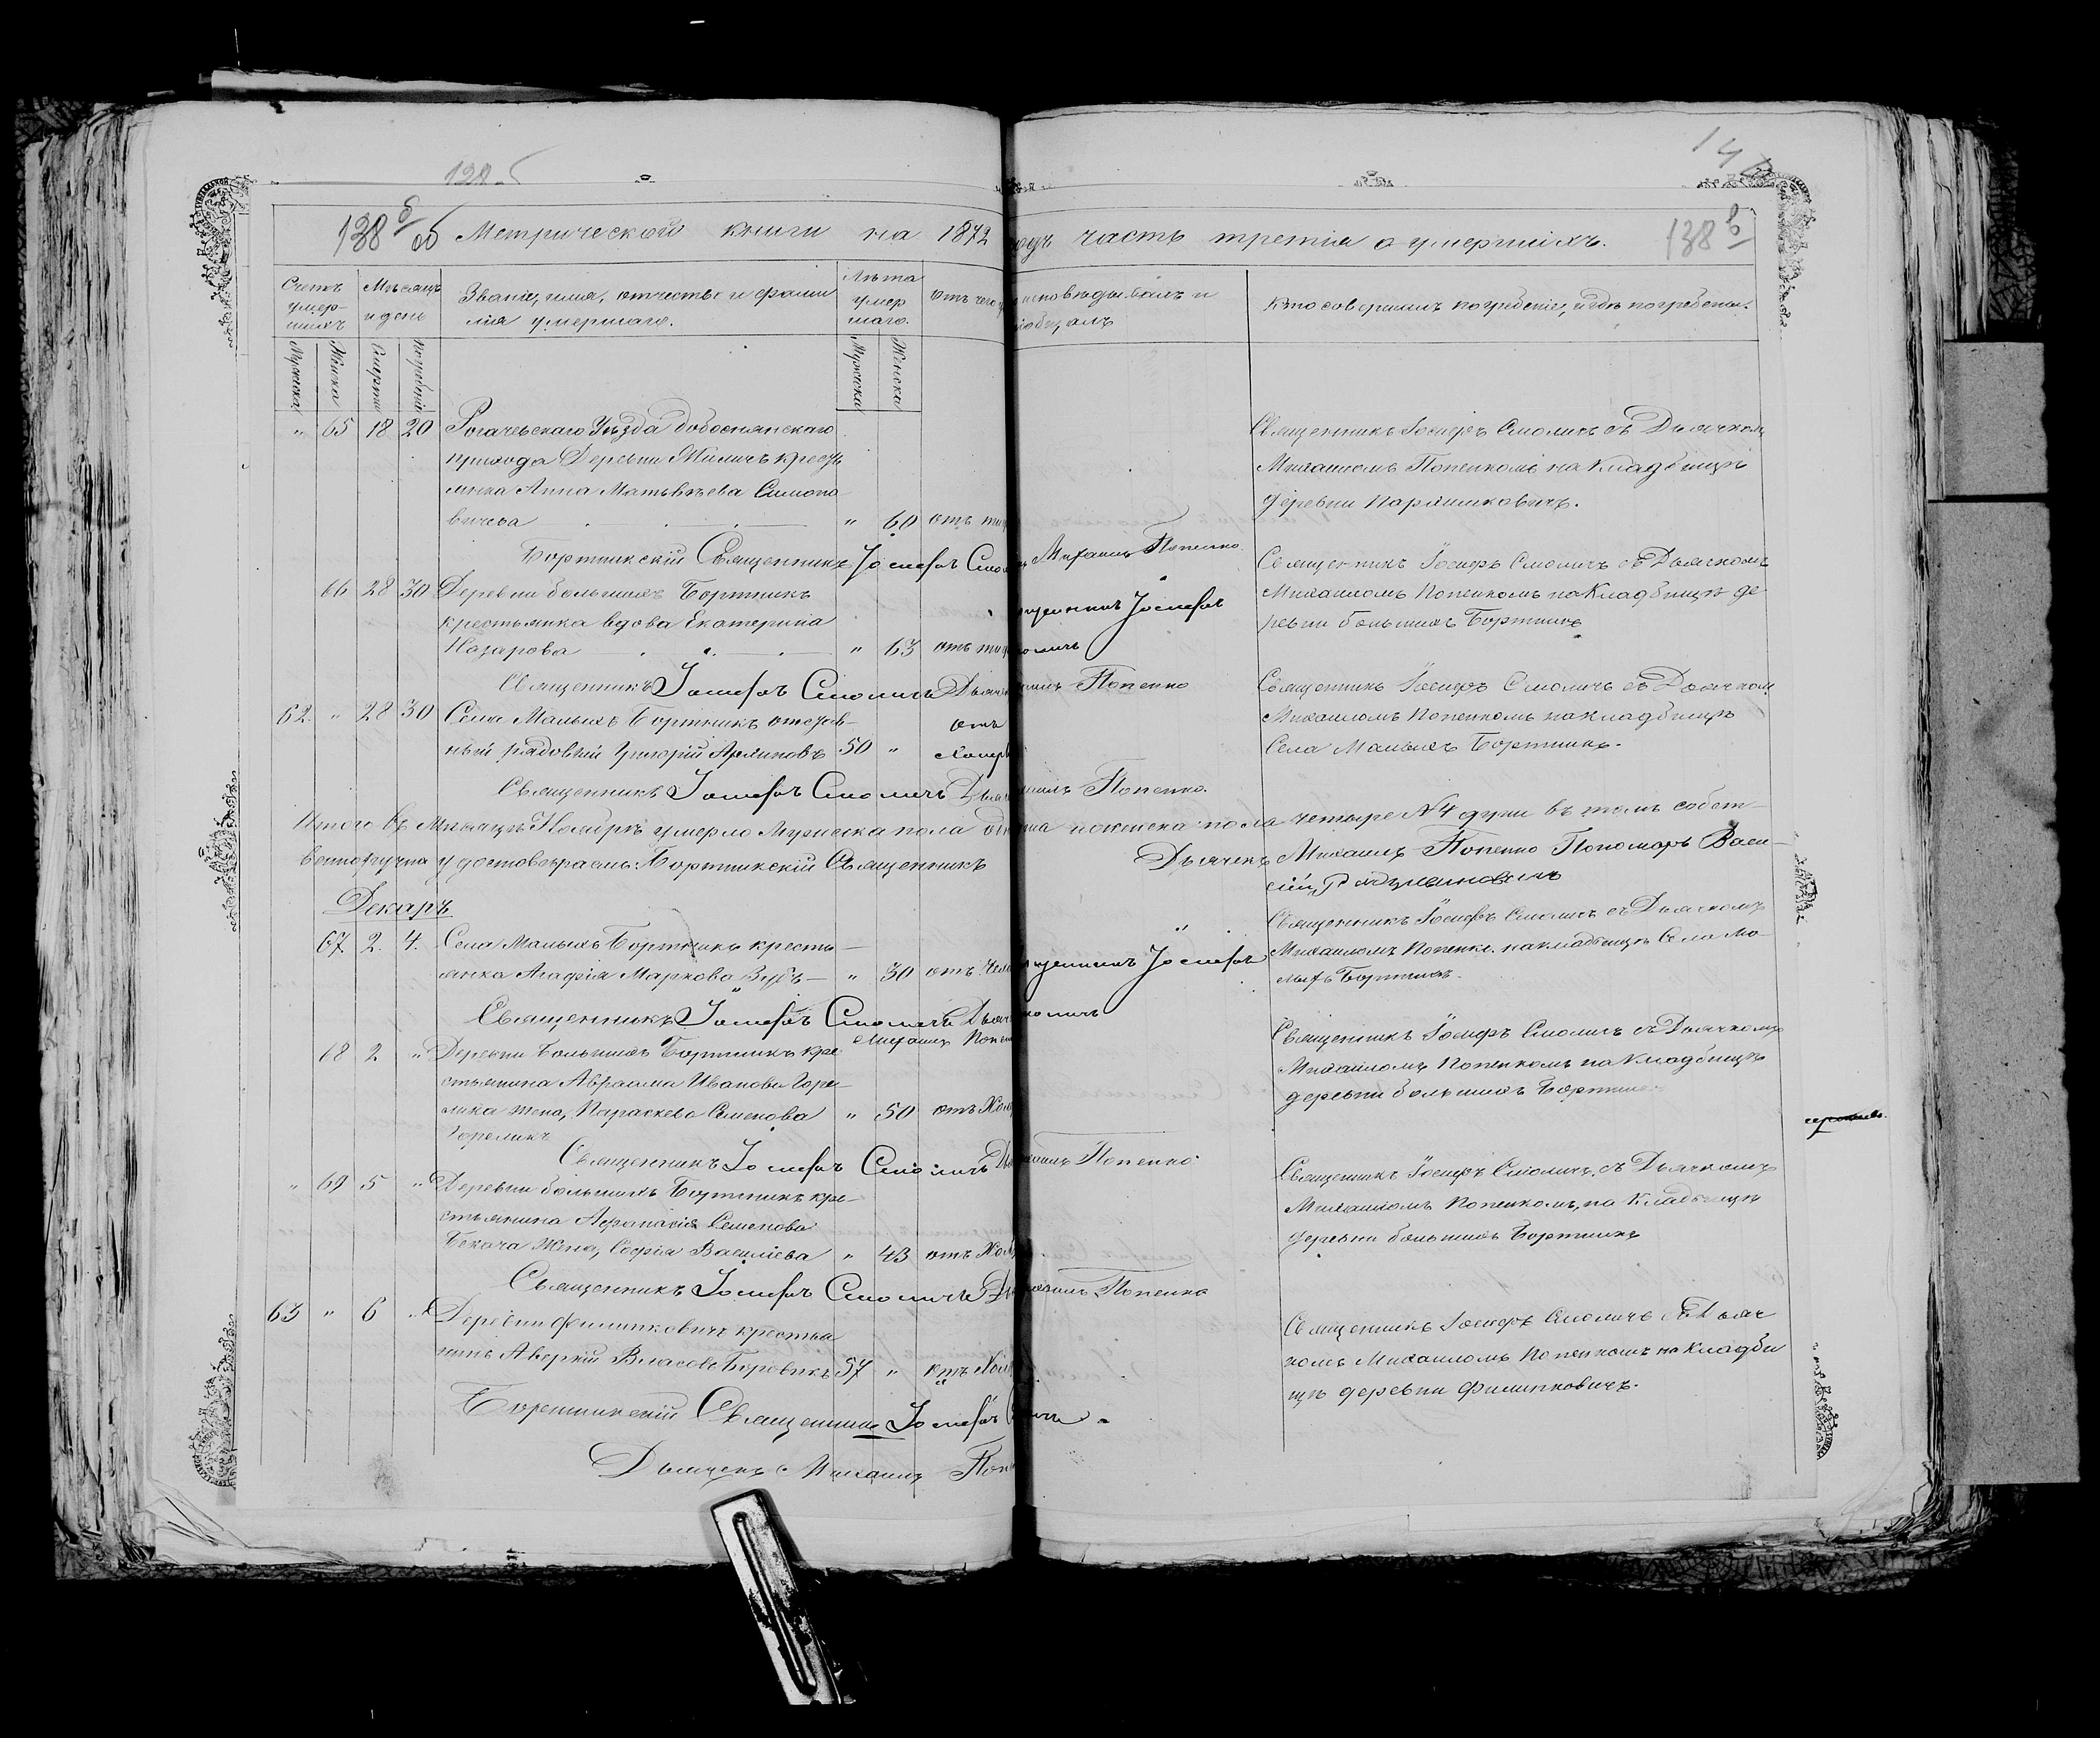 128 б
138 б об Метрической книги на 1872 годъ часть третія о умершихъ. 138 в
Счетъ умер-шихъ
Мѣсяцъ и день
Званіе, имя, отчество и фами
лія умершаго.
Лѣта
умер
шаго.
отъ чего
исповѣдывалъ и
кто совершалъ погребеніе, и гдѣ погребены.
Мужска Женска Смерти Погребенія Мужска Женска
" 65 18 20 Рогачевскаго Уѣзда Добоснянскаго
прихода Деревни Миличъ кресть
янка Анна Матвѣева Симоно
вичева " 60 отъ
Священникъ Іосифъ Смоличъ съ Дьячкомъ
Михаиломъ Попенкомъ на Кладбищѣ
деревни Паршиковичъ.
Бортникскій Священникъ Іосифъ Михаилъ Попенко
66 28 30 Деревни большихъ Бортникъ
крестьянка вдова Екатерина
Назарова " 63 отъ
Священникъ Іосифъ Смоличъ съ Дьячкомъ
Михаиломъ Попенкомъ на Кладбищѣ де
ревни большихъ Бортникъ
Іосифъ
Священникъ Іосифъ Смоличъ Попенко
62. " 28 30 Села Малыхъ Бортникъ отстав-
ный рядовый Григорій 50 " отъ
Священникъ Іосифъ Смоличъ съ Дьячком
Михаиломъ Попенкомъ на кладбищѣ
Села Малыхъ Бортникъ.
Священникъ Іосифъ Смоличъ Попенко.
Итого въ Мѣсяцѣ Ноябрѣ умерло Мужеска пола женска пола четыре № 4 души въ томъ собст-
венноручно удостовѣряемъ: Бортникскій Священникъ
Дьячекъ Михаилъ Попенко Пономарь Васи-
лій
Декарь
67. 2. 4. Села Малыхъ Бортникъ кресть-
янка Агафія Маркова Зубъ " 30 отъ
Священникъ Іосифъ Смоличъ съ Дьячкомъ
Михаиломъ Попенко. на кладбищѣ Села Ма
лыхъ Бортникъ.
Іосифъ
Священникъ Іосифъ Смоличъ
Михаилъ
68 2 " Деревни Большихъ Бортникъ кре
стьянина Авраама Иванова Горе-
лика жена, Параскева Семенова " 50 отъ
Гореликъ
Священникъ Іосифъ Смоличъ съ Дьячкомъ
Михаиломъ Попенкомъ на Кладбищѣ
деревни большихъ Бортникъ
Священникъ Іосифъ Смоличъ Попенко
" 69 5 " Деревни большихъ Бортникъ кре-
стьянина Афанасія Семенова
Бекача Жена, Софія Василіева " 43 отъ
Священникъ Іосифъ Смоличъ, съ Дьячкомъ
Михаиломъ Попенкомъ, на Кладбищѣ
деревни большихъ Бортникъ
Священникъ Іосифъ Смоличъ Попенко
63 " 6 " Деревни Филипковичъ крестья
нинъ Аверкій Власовъ Боровикъ 57 " отъ
Священникъ Іосифъ Смоличъ съ Дьяч
комъ Михаиломъ Попенкомъ на Кладби
щѣ деревни Филипковичъ.
Бортникскій Священникъ Іосифъ
Дьячекъ Михаилъ